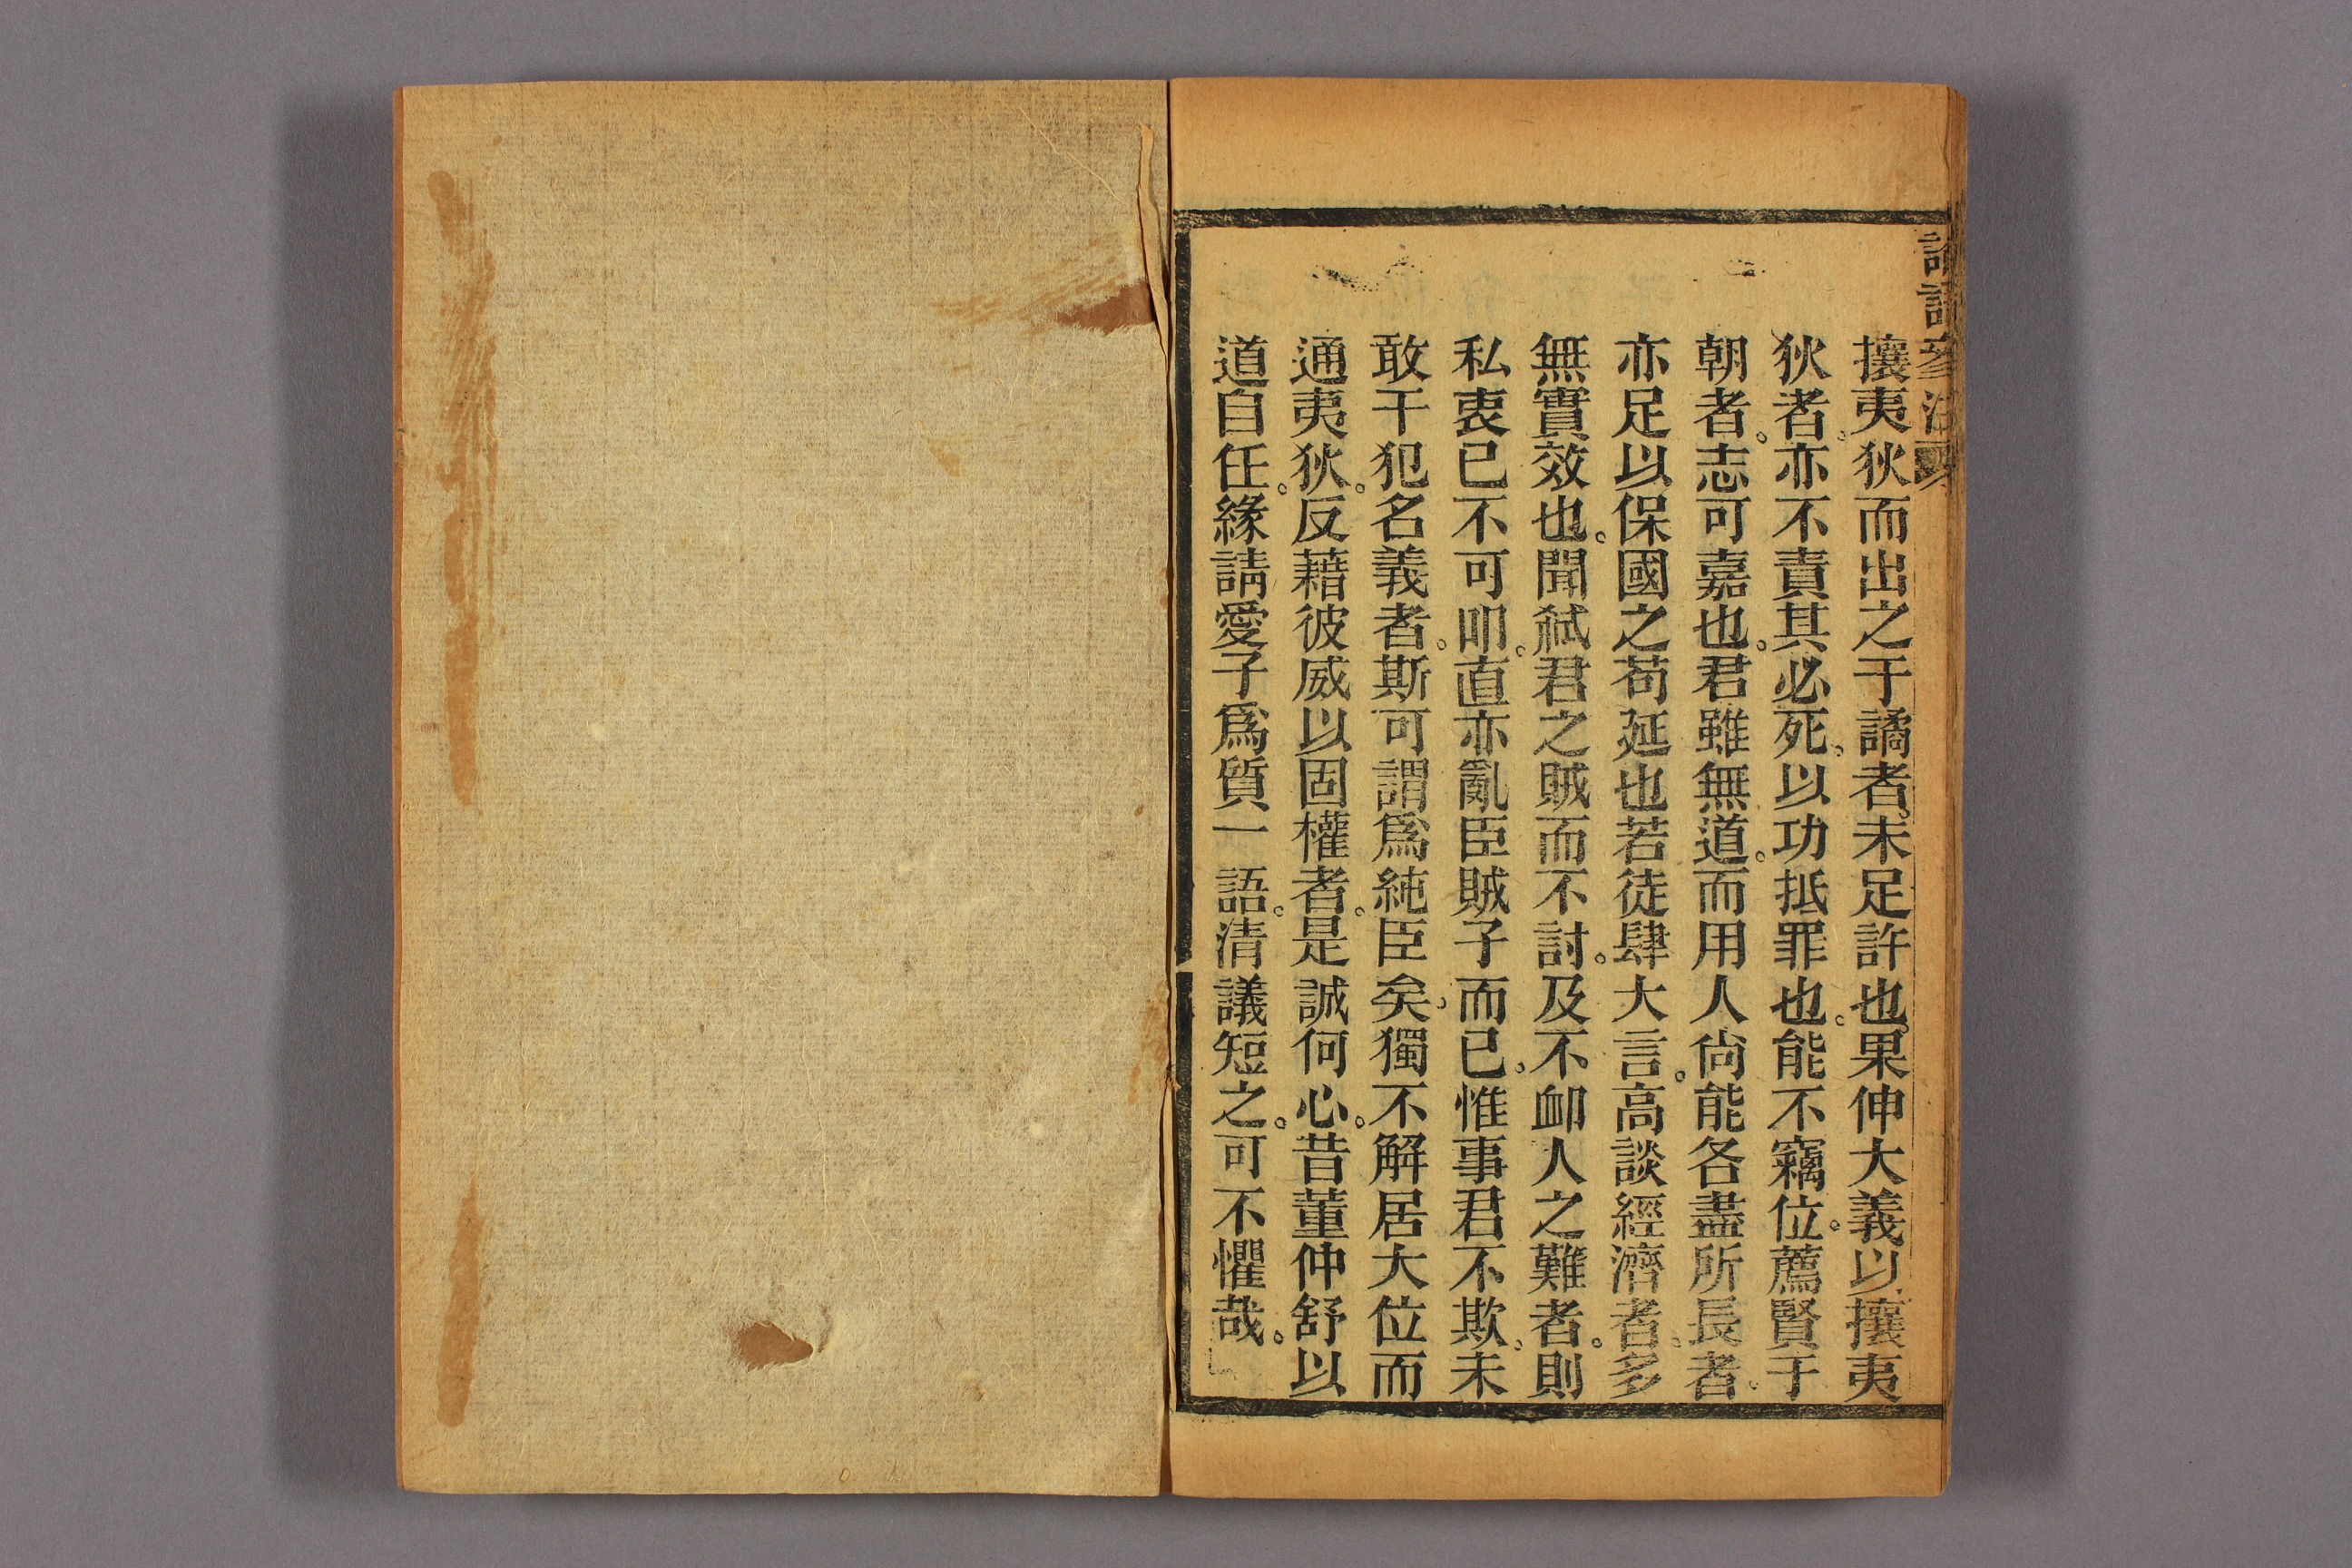 論語參注
攘夷狄而出之于譎者。未足許也。果伸大義以攘夷
狄者。亦不責其必死。以功抵罪也。能不竊位。薦賢于
朝者。志可嘉也。君雖無道。而用人尙能各盡所長者。
亦足以保國之苟延也若徒肆大言。高談經濟者。多
無實效也。聞弑君之賊而不討。及不衈人之難者。則
私衷已不可叩。直亦亂臣賊子而已。惟事君不欺。未
敢干犯名義者。斯可謂爲純臣矣。獨不解居大位而
通夷狄。反藉彼威以固權者。是誠何心。昔董仲舒以
道自任。緣請愛子爲質一語。清議短之。可不懼哉。